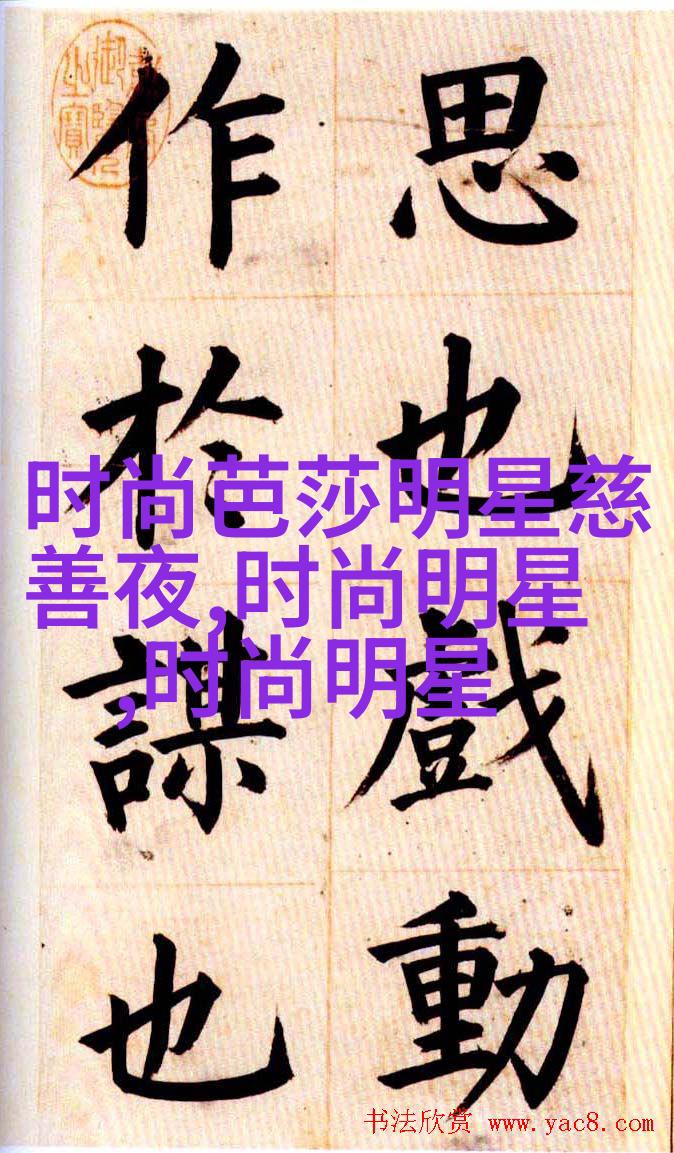 思也戲動
作於謀也
时尚芭莎明星慈
善夜,时尚明星
,时尚明星
书法欣赏 www.yac8.com